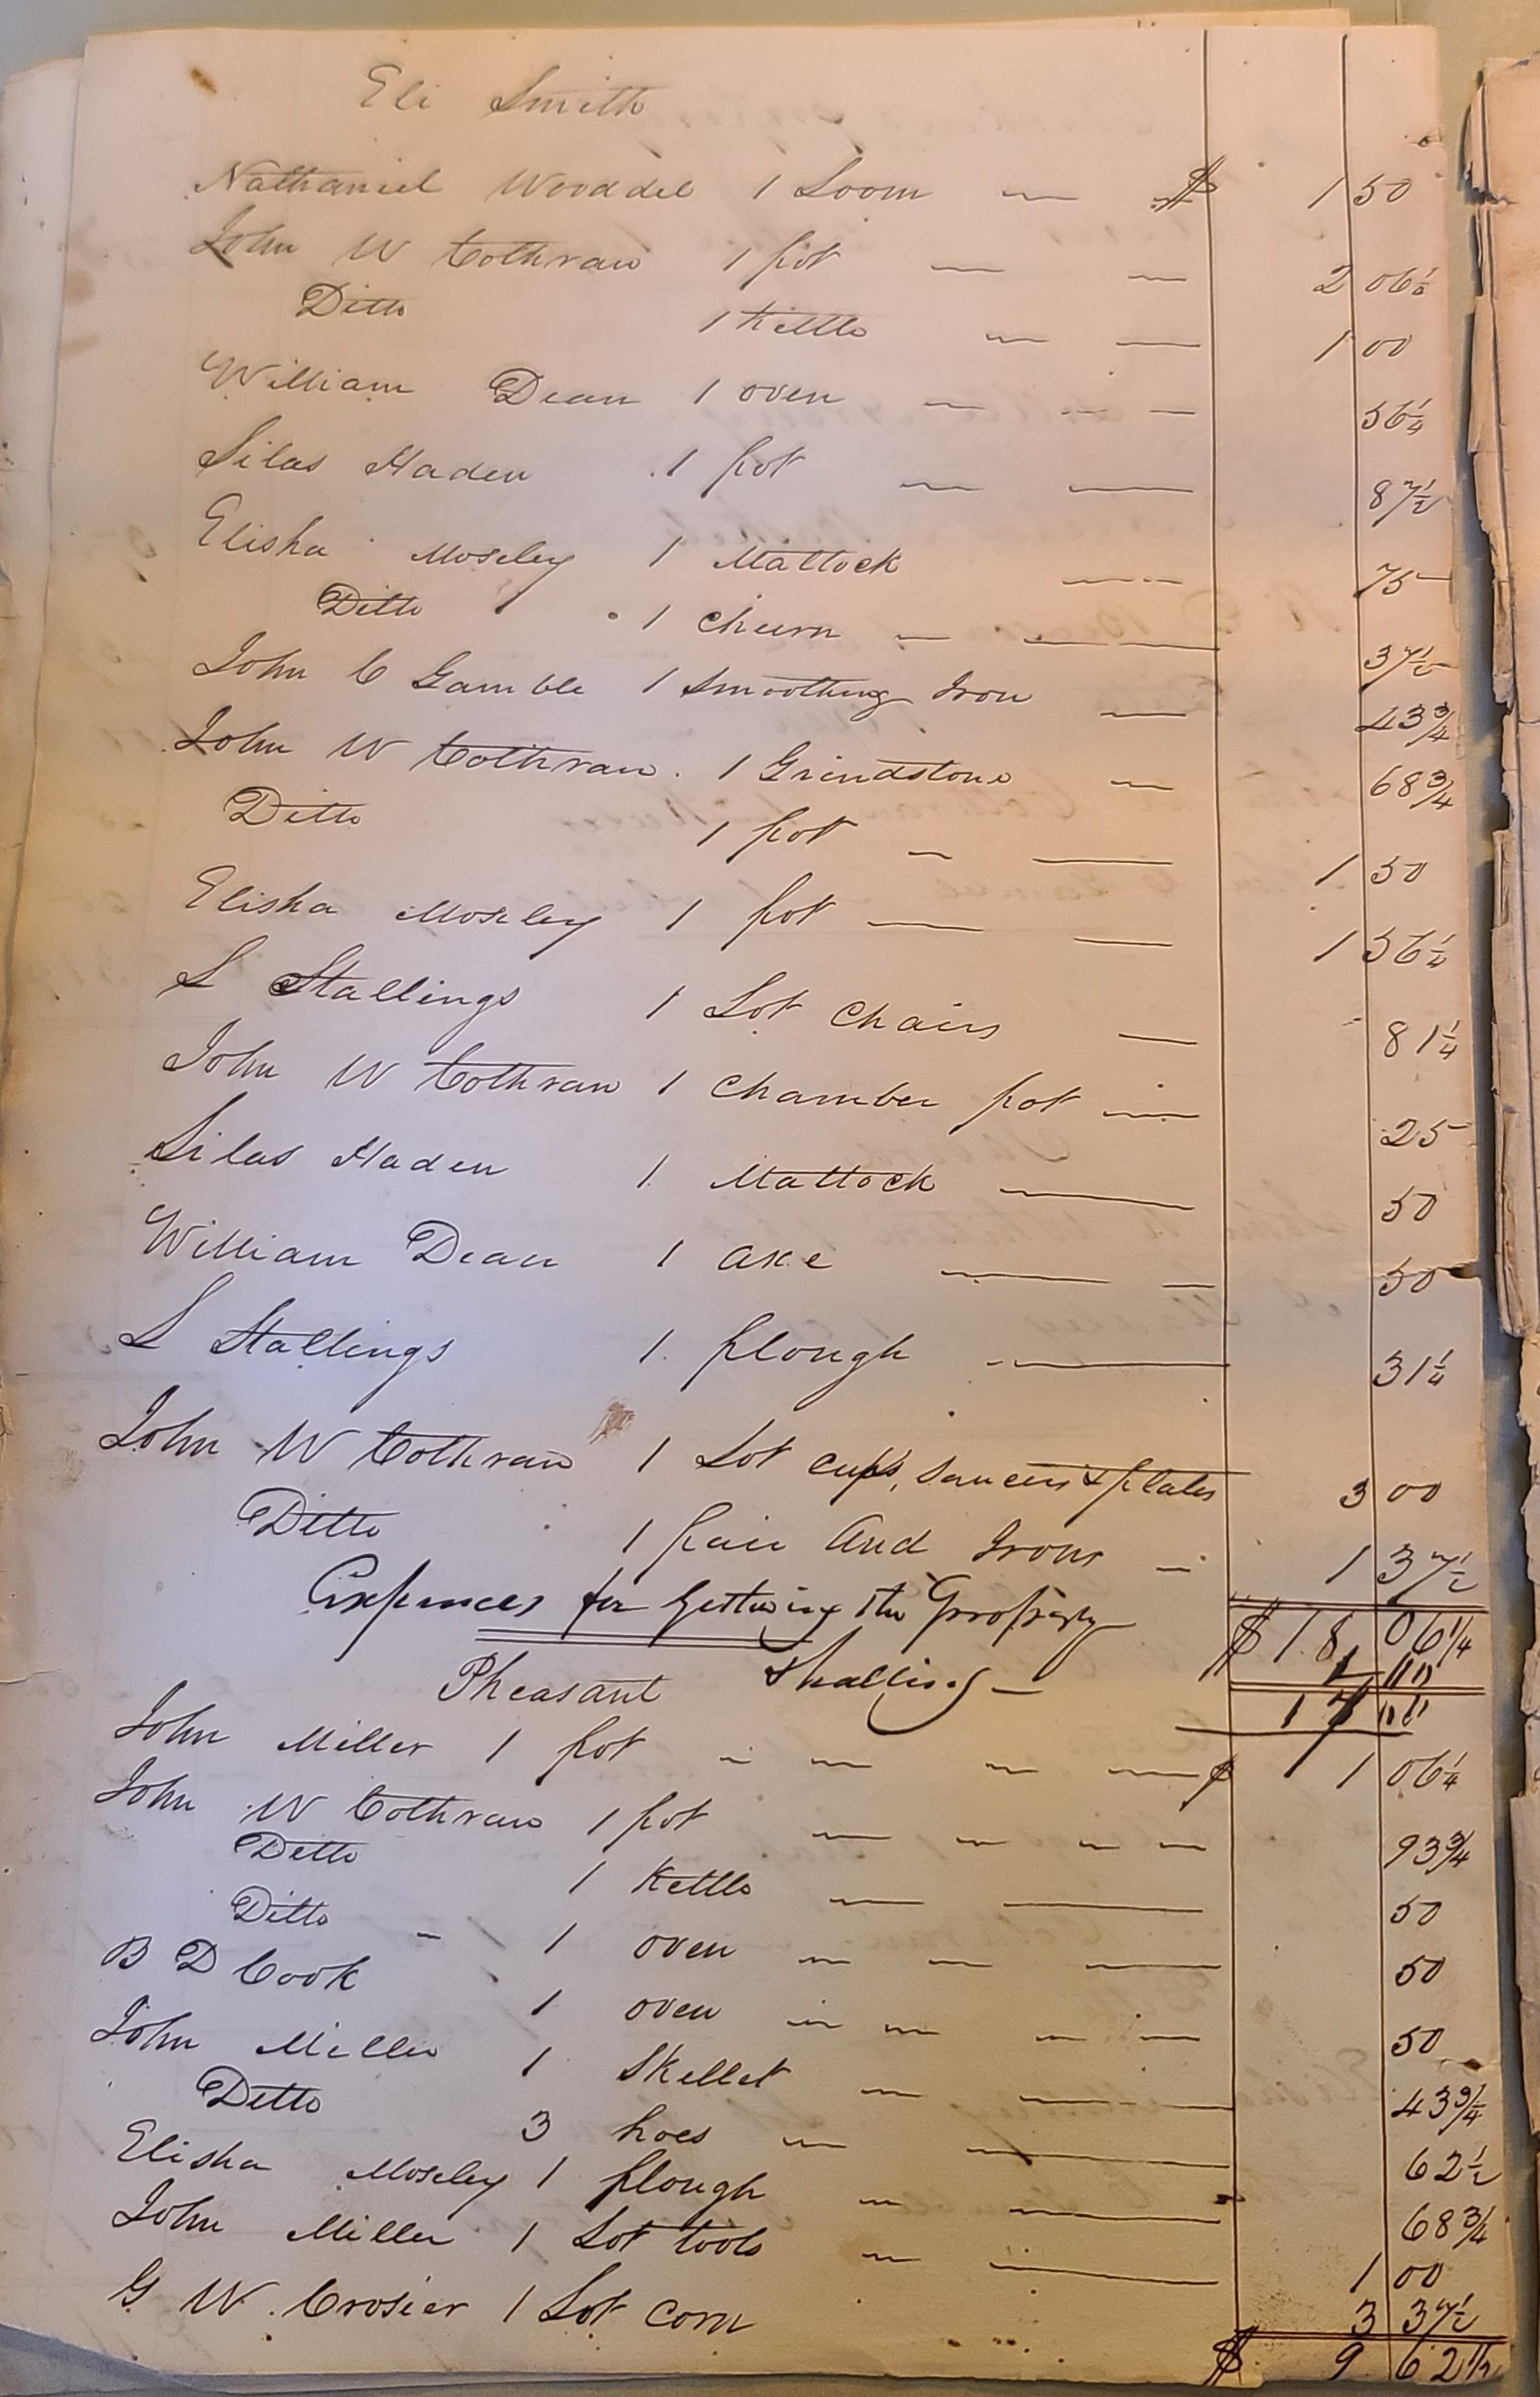 Eli Smith
Nathaniel Wooddel 1 Loom $ 1 50
John W Cothran 1 pot 2 06¼
Ditto 1 Kettle 1 00
William Dean 1 oven 56¼
Silas Haden 1 pot 87½
Elisha Moseley 1 Mattock 75
Ditto 1 churn 37½
John C Gamble 1 Smoothing Iron 43¾
John W Cothran 1 Grindstone 68¾
Ditto 1 pot 1 50
Elisha Moseley 1 pot 1 56¼
S Stallings 1 Lot Chairs 81¼
John W Cothran 1 Chamber pot 25
Silas Haden 1 Mattock 50
William Dean 1 axe 50
S Stallings 1 plough 31¼
John W Cothran 1 Lot cups, saucers & plates 3 00
Ditto 1 pair And Irons 1 37½
Expences for Getting the Property $ 18 06¼
1 "
17 "
Pheasant
John Miller 1 pot $ 1 06¼
John W Cothran 1 pot 93¾
Ditto 1 Kettle 50
Ditto 1 oven 50
B D Cook 1 oven 50
John Miller 1 Skellet 43¾
Ditto 3 hoes 62½
Elisha Moseley 1 plough 68¾
John Miller 1 Lot tools 1 00
G W Crosier 1 Lot corn 3 37½
$ 9 62½